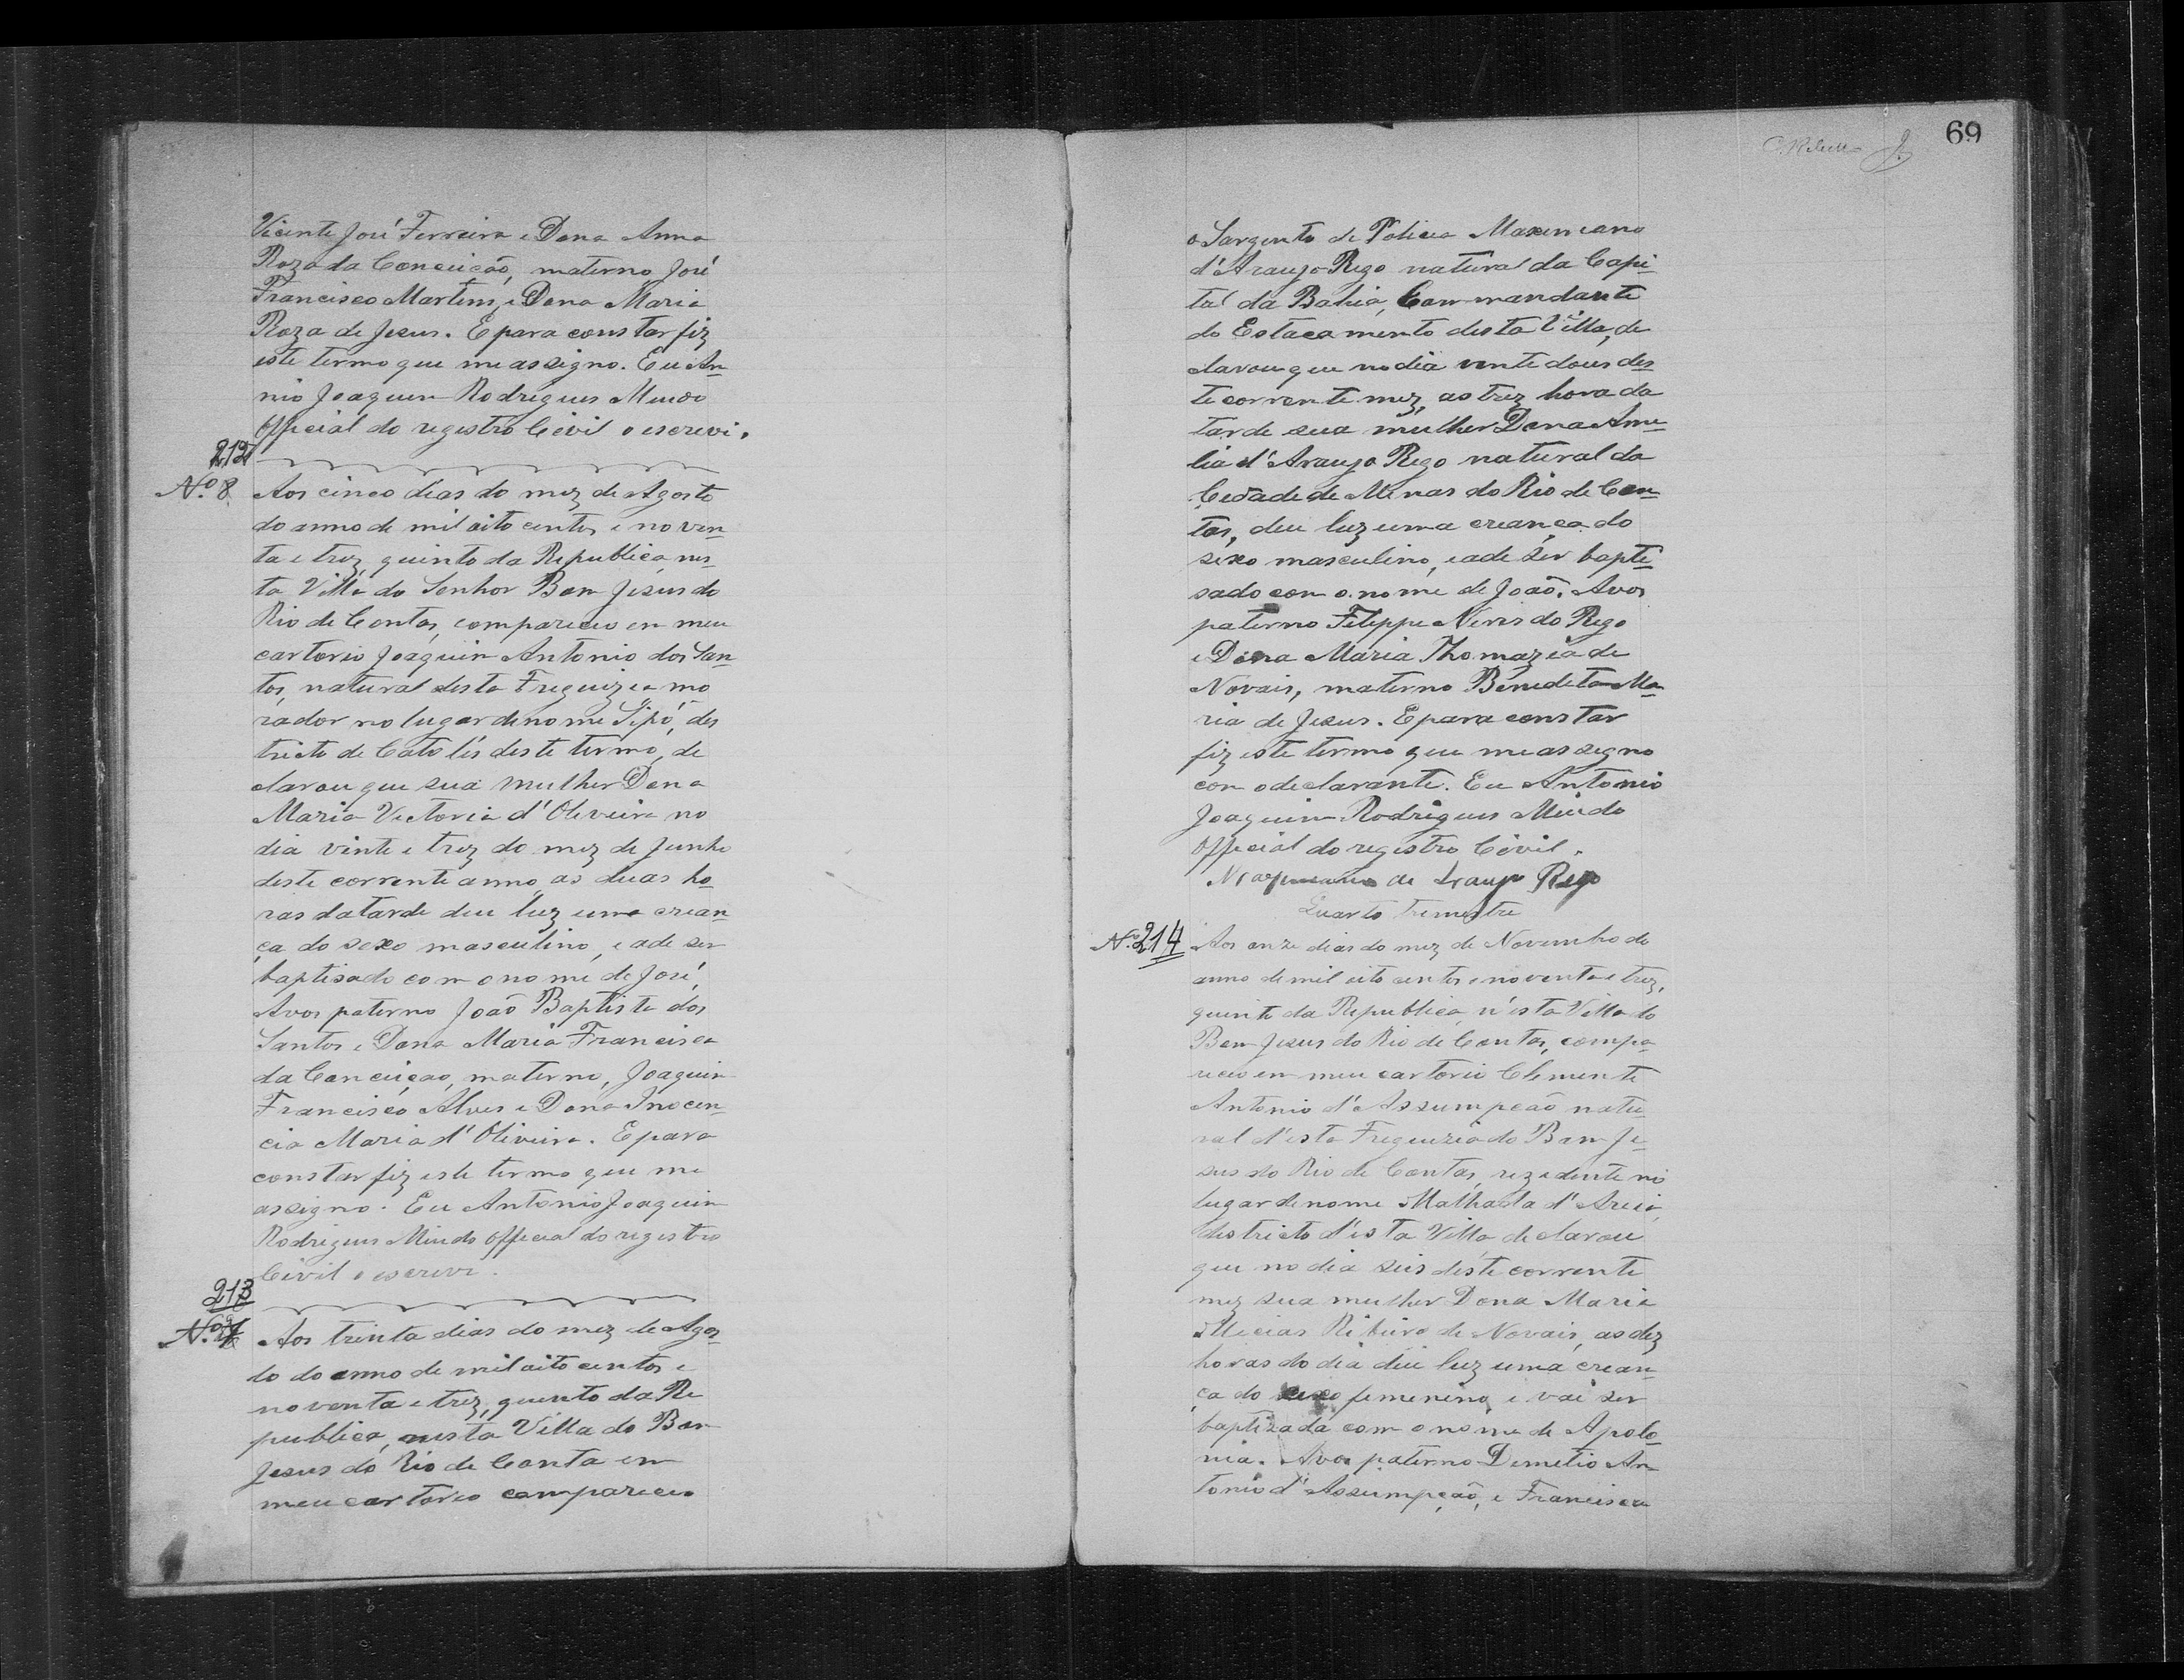 Vicente José Ferreira e Dona Anna
Roza da Conceição, materno José
Francisco Martins, e Dona Maria
Roza de Jesus. E para constar fiz
este termo que me assigno. Eu An
nio Joaquim Rodrigues Miudo
Official do registro Civil o escrevi.
212
N.º 8 Aos cinco dias do mez de Agosto
do anno de mil oito centos e noven
ta e trez, quinto da Republica, nes
ta Villa do Senhor Bom Jesus do
Rio de Contas, compareceo em meu
cartorio Joaquim Antonio dos San
tos, natural desta Freguizia mo
rador no lugar de nome Sipó, des
tricto de Catolés deste termo, de
clarou que sua mulher Dona
Maria Victoria d'Oliveira no
dia vinte e trez do mez de Junho
deste corrente anno, as duas ho
ras da tarde deu luz uma crean
ça do sexo masculino, e ade ser
baptisado com o nome de José,
Avos paterno João Baptista dos
Santos e Dona Maria Francisca
da Conceiçao, materno, Joaquim
Francisco Alves e Dona Inocen
cia Maria d'Oliveira. E para
constar fiz este termo que me
assigno. Eu Antonio Joaquim
Rodrigues Miudo Official do registro
Civil o escrevi.
213
N.º Aos trinta dias do mez de Agos
to do anno de mil oito centos e
noventa e trez, quinto da Re
publica, nesta Villa do Bom
Jesus do Rio de Conta em
meu cartorio compareceo
69
o Sargento de Policia Maximiano
d'Araujo Rego natural da Capi
tal da Bahia, Commandante
do Estacamento desta Villa, de
clarou que no dia vente dous des
te corrente mez, as trez hora da
tarde sua mulher Dona Ame
lia d'Araujo Rego natural da
Cedade de Minas do Rio de Con
tas, deu luz uma creança do
sexo masculino, e ade ser bapti
sado com o nome de João. Avos
paterno Felippe Neres do Rego
e Dona Maria Thomazia de
Novais, materno Benedeta Ma
ria de Jesus. E para constar
fiz este termo que me assegno
com o declarante. Eu Antonio
Joaquim Rodrigues Miudo
Official do registro Civil.
Maximiano de Araujo Rego
Quarto trimestre
N.º 214 Aos onze dias do mez de Novembro do
anno de mil oito centos e noventa e trez,
quinto da Republica, n'esta Villa do
Bom Jesus do Rio de Contas, compa
receo em meu cartorio Clemente
Antonio d'Assumpção natu
ral d'esta Freguezia do Bom Je
sus do Rio de Contas, rezedente no
lugar de nome Malhada d'Areia,
destricto d'esta Villa, declarou
que no dia seis deste corrente
mez sua mulher Dona Maria
Mecias Ribeiro de Novais, as dez
horas do dia deu luz uma crean
ça do sexo femenino, e vai ser
baptizada com o nome de Apolo
nia. Avos paterno Demetio An
tonio d'Assumpção, e Francisca